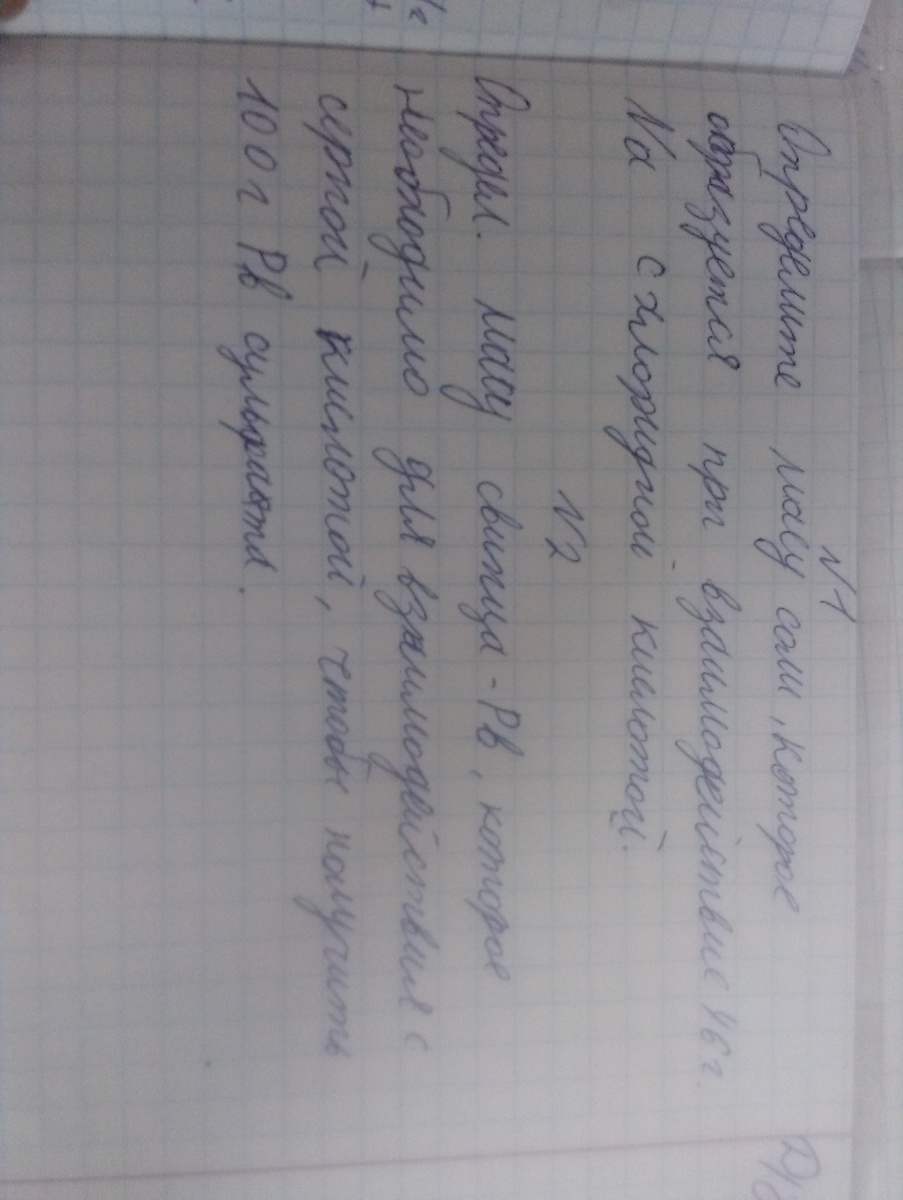 N1
Определите массу соли, которое
образуется при взаимодействие 46 г.
Na с хлоридной кислотой.
N2
Определ. массу свинца - Рв, которое
необходимо для взаимодействия с
серной кислотой, чтобы получить
100 г Рв сульфата.